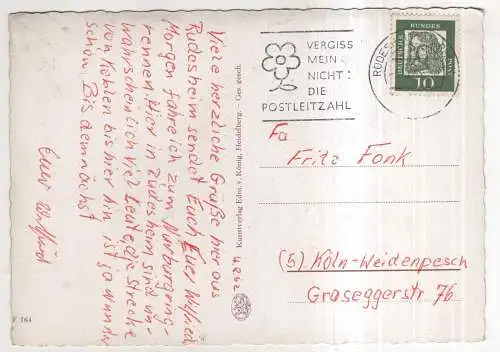 Viele herzliche Grüße hier aus
Rüdesheim sendet Euch Euer Wilfried
Morgen fahre ich zum Nürburgring-
rennen. Hier in Rüdesheim sind un-
wahrscheinlich viel Leute, die Strecke
von Koblenz bis hier hin ist ja wunder
schön. Bis demnächst
Euer Wilfried
F 164
Kunstverlag Edm. v. König, Heidelberg. - Ges. gesch.
VERGISS
MEIN
NICHT:
DIE
POSTLEITZAHL
RÜDES
DEUTSCHE
BUNDES
POST
10
Fa
Fritz Fonk
(5) Köln-Weidenpesch
Groseggerstr 76